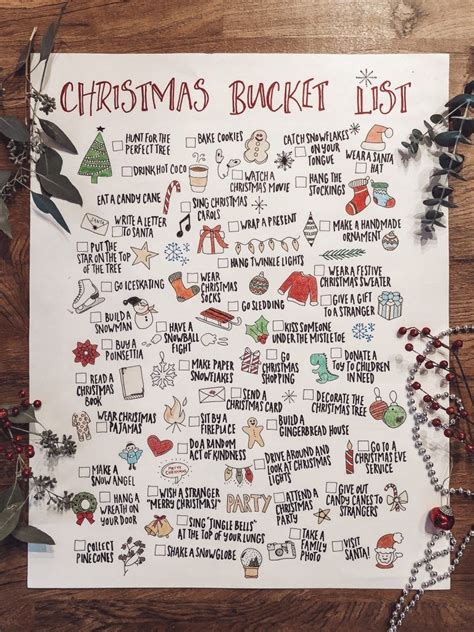 CHRISTMAS BUCKET LIST
HUNT FOR THE
PERFECT TREE
BAKE COOKIES
CATCH SNOWFLAKES
ON YOUR
TONGUE
WEAR A SANTA
HAT
DRINK HOT COCO
WATCH A
CHRISTMAS MOVIE
HANG THE
STOCKINGS
EAT A CANDY CANE
SING CHRISTMAS
CAROLS
WRITE A LETTER
TO SANTA
WRAP A PRESENT
MAKE A HANDMADE
ORNAMENT
PUT THE
STAR ON THE TOP
OF THE TREE
HANG TWINKLE LIGHTS
GO ICESKATING
WEAR
CHRISTMAS
SOCKS
GO SLEDDING
WEAR A FESTIVE
CHRISTMAS SWEATER
GIVE A GIFT
TO A STRANGER
BUILD A
SNOWMAN
HAVE A
SNOWBALL
FIGHT
KISS SOMEONE
UNDER THE MISTLETOE
BUY A
POINSETTIA
MAKE PAPER
SNOWFLAKES
GO
CHRISTMAS
SHOPPING
DONATE A
TOY TO CHILDREN
IN NEED
READ A
CHRISTMAS
BOOK
SEND A
CHRISTMAS CARD
DECORATE THE
CHRISTMAS TREE
WEAR CHRISTMAS
PAJAMAS
SIT BY A
FIREPLACE
BUILD A
GINGERBREAD HOUSE
DO A RANDOM
ACT OF KINDNESS
DRIVE AROUND AND
LOOK AT CHRISTMAS
LIGHTS
GO TO A
CHRISTMAS EVE
SERVICE
MAKE A
SNOW ANGEL
MERRY CHRISTMAS!
WISH A STRANGER
"MERRY CHRISTMAS!"
PARTY
ATTEND A
CHRISTMAS
PARTY
GIVE OUT
CANDY CANES TO
STRANGERS
HANG A
WREATH ON
YOUR DOOR
SING "JINGLE BELLS"
AT THE TOP OF YOUR LUNGS
COLLECT
PINECONES
SHAKE A SNOWGLOBE
TAKE A
FAMILY
PHOTO
VISIT
SANTA!